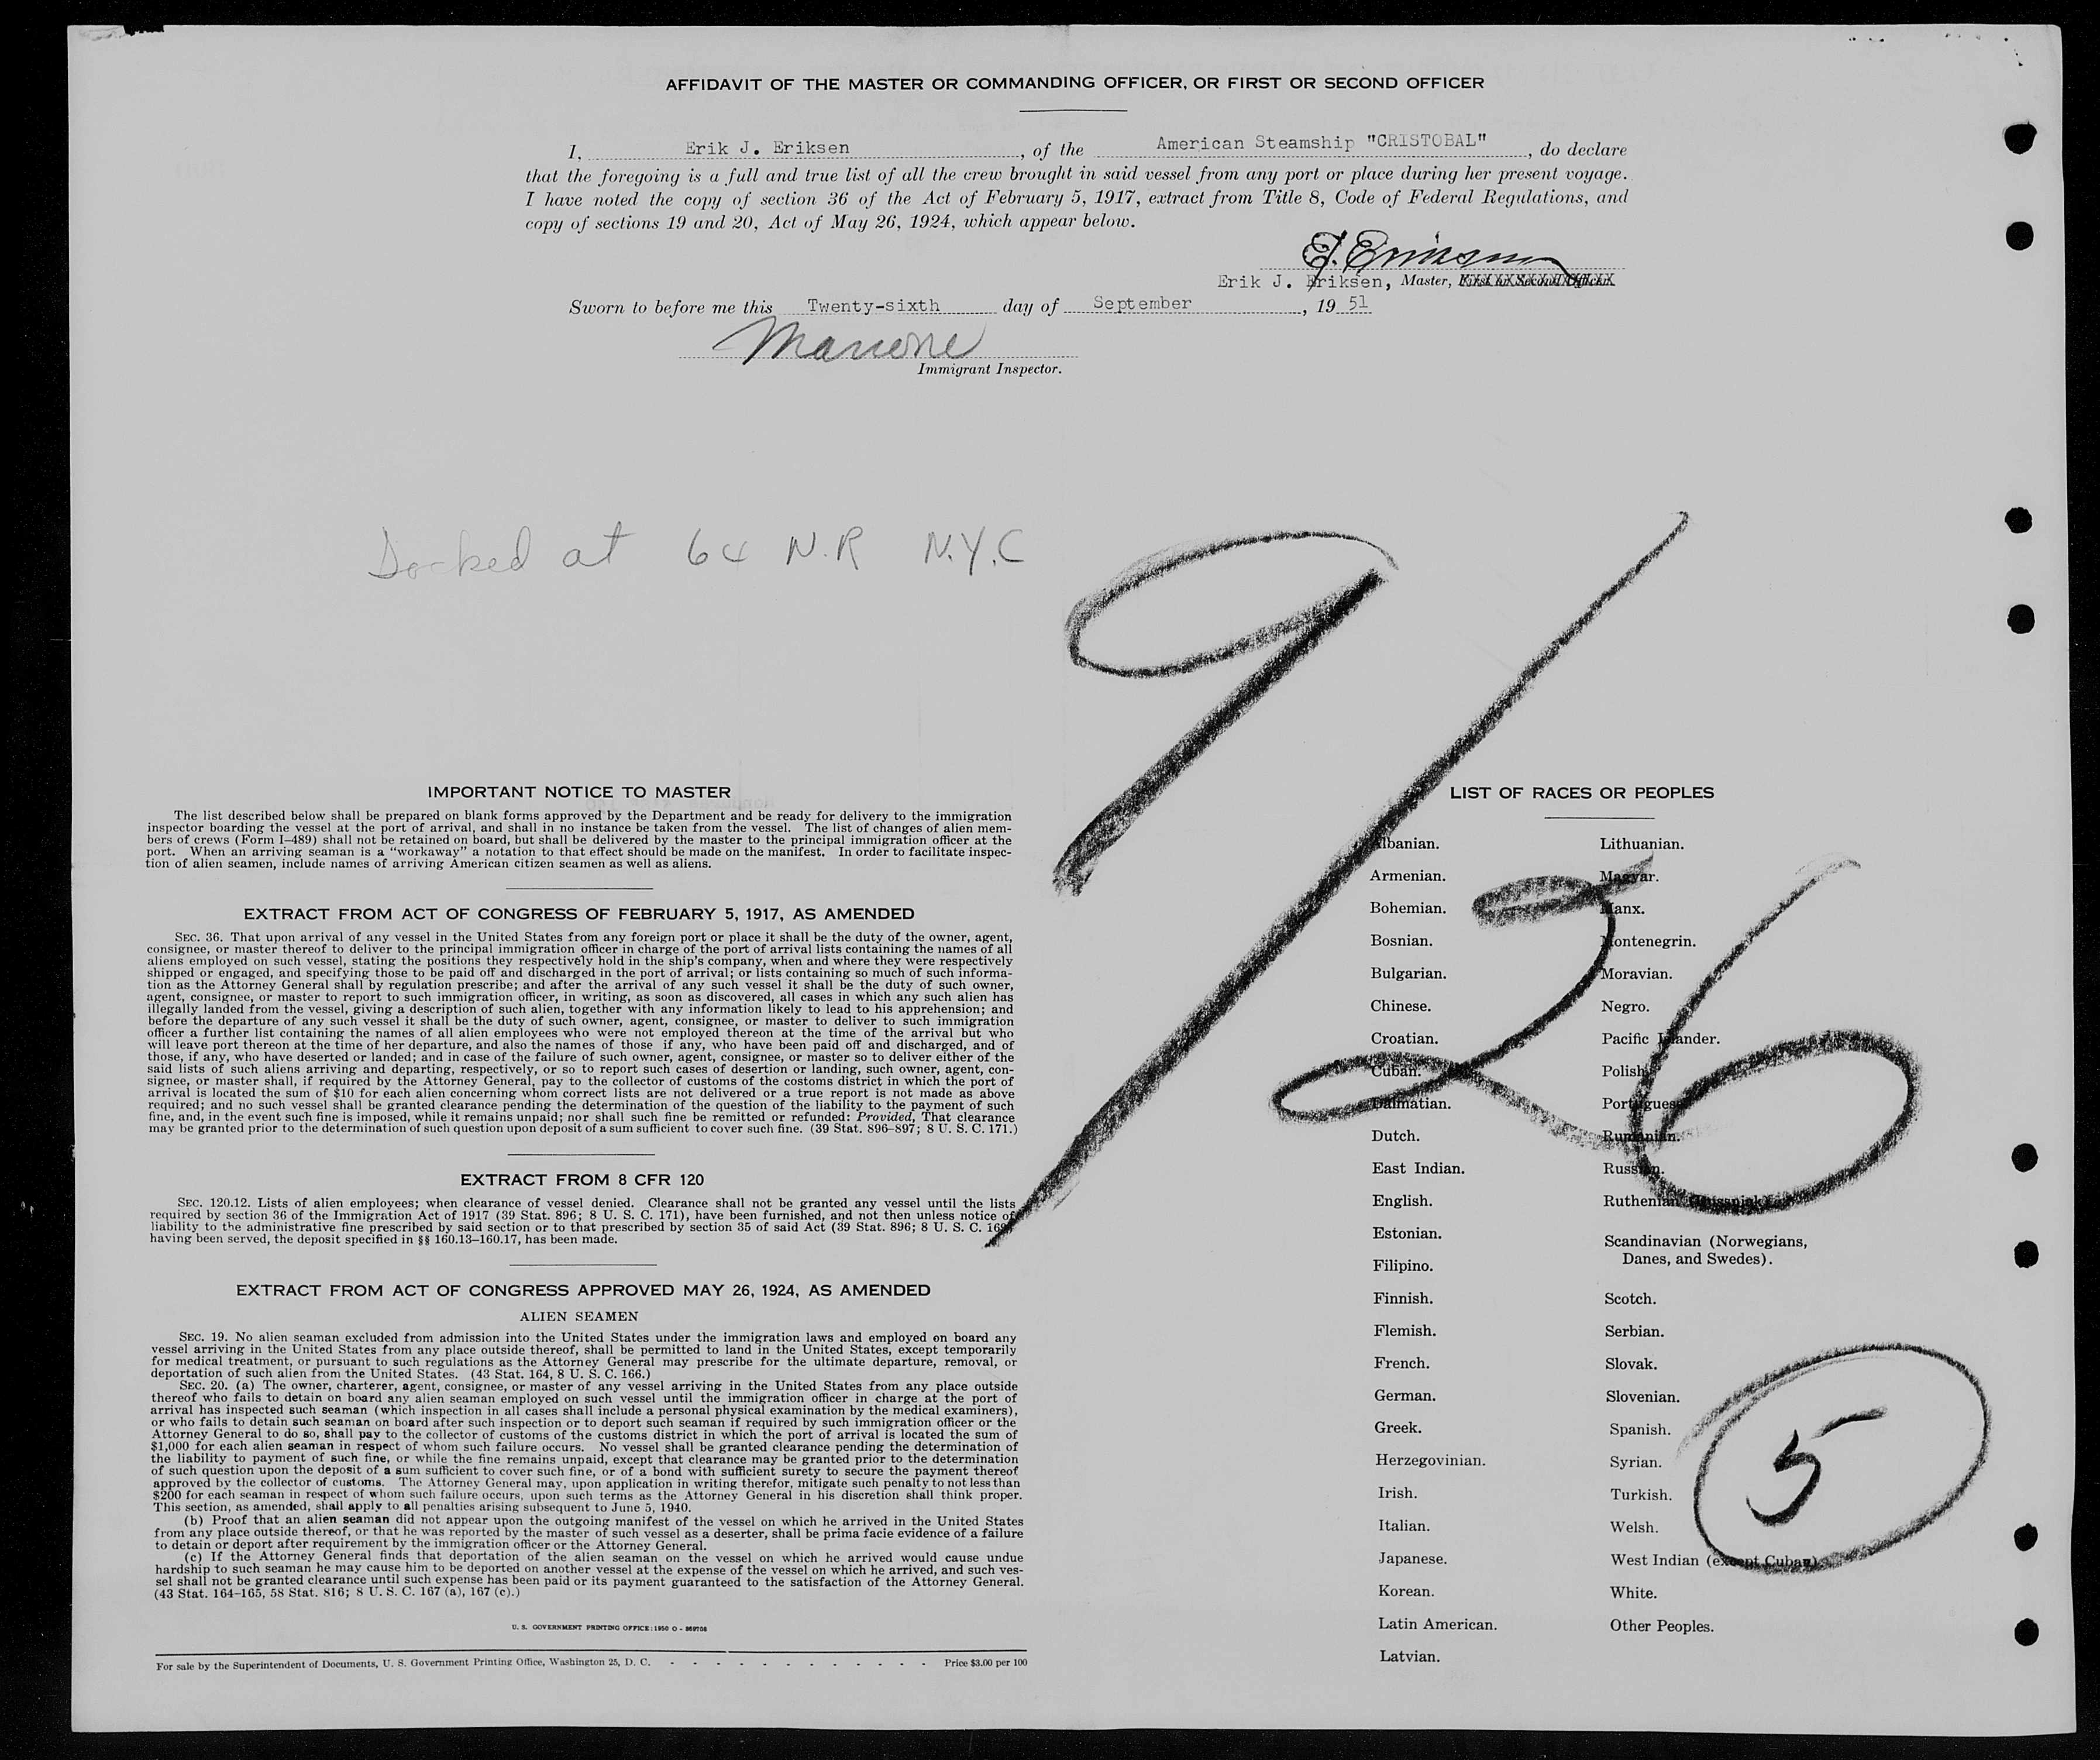 AFFIDAVIT OF THE MASTER OR COMMANDING OFFICER, OR FIRST OR SECOND OFFICER
I, Erik J. Eriksen, of the American Steamship "CRISTOBAL", do declare
that the foregoing is a full and true list of all the crew brought in said vessel from any port or place during her present voyage.
I have noted the copy of section 36 of the Act of February 5, 1917, extract from Title 8, Code of Federal Regulations, and
copy of sections 19 and 20, Act of May 26, 1924, which appear below.
E. Eriksen
Erik J. Eriksen, Master, First or Second Officer.
Sworn to before me this Twenty-sixth day of September, 19 51
Immigrant Inspector.
Docked at 64 N.R N.Y.C
9/26
IMPORTANT NOTICE TO MASTER
The list described below shall be prepared on blank forms approved by the Department and be ready for delivery to the immigration
inspector boarding the vessel at the port of arrival, and shall in no instance be taken from the vessel. The list of changes of alien mem-
bers of crews (Form I–489) shall not be retained on board, but shall be delivered by the master to the principal immigration officer at the
port. When an arriving seaman is a "workaway" a notation to that effect should be made on the manifest. In order to facilitate inspec-
tion of alien seamen, include names of arriving American citizen seamen as well as aliens.
EXTRACT FROM ACT OF CONGRESS OF FEBRUARY 5, 1917, AS AMENDED
SEC. 36. That upon arrival of any vessel in the United States from any foreign port or place it shall be the duty of the owner, agent,
consignee, or master thereof to deliver to the principal immigration officer in charge of the port of arrival lists containing the names of all
aliens employed on such vessel, stating the positions they respectively hold in the ship's company, when and where they were respectively
shipped or engaged, and specifying those to be paid off and discharged in the port of arrival; or lists containing so much of such informa-
tion as the Attorney General shall by regulation prescribe; and after the arrival of any such vessel it shall be the duty of such owner,
agent, consignee, or master to report to such immigration officer, in writing, as soon as discovered, all cases in which any such alien has
illegally landed from the vessel, giving a description of such alien, together with any information likely to lead to his apprehension; and
before the departure of any such vessel it shall be the duty of such owner, agent, consignee, or master to deliver to such immigration
officer a further list containing the names of all alien employees who were not employed thereon at the time of the arrival but who
will leave port thereon at the time of her departure, and also the names of those if any, who have been paid off and discharged, and of
those, if any, who have deserted or landed; and in case of the failure of such owner, agent, consignee, or master so to deliver either of the
said lists of such aliens arriving and departing, respectively, or so to report such cases of desertion or landing, such owner, agent, con-
signee, or master shall, if required by the Attorney General, pay to the collector of customs of the costoms district in which the port of
arrival is located the sum of $10 for each alien concerning whom correct lists are not delivered or a true report is not made as above
required; and no such vessel shall be granted clearance pending the determination of the question of the liability to the payment of such
fine, and, in the event such fine is imposed, while it remains unpaid; nor shall such fine be remitted or refunded: Provided, That clearance
may be granted prior to the determination of such question upon deposit of a sum sufficient to cover such fine. (39 Stat. 896–897; 8 U. S. C. 171.)
EXTRACT FROM 8 CFR 120
SEC. 120.12. Lists of alien employees; when clearance of vessel denied. Clearance shall not be granted any vessel until the lists
required by section 36 of the Immigration Act of 1917 (39 Stat. 896; 8 U. S. C. 171), have been furnished, and not then unless notice of
liability to the administrative fine prescribed by said section or to that prescribed by section 35 of said Act (39 Stat. 896; 8 U. S. C. 169)
having been served, the deposit specified in §§ 160.13–160.17, has been made.
EXTRACT FROM ACT OF CONGRESS APPROVED MAY 26, 1924, AS AMENDED
ALIEN SEAMEN
SEC. 19. No alien seaman excluded from admission into the United States under the immigration laws and employed on board any
vessel arriving in the United States from any place outside thereof, shall be permitted to land in the United States, except temporarily
for medical treatment, or pursuant to such regulations as the Attorney General may prescribe for the ultimate departure, removal, or
deportation of such alien from the United States. (43 Stat. 164, 8 U. S. C. 166.)
SEC. 20. (a) The owner, charterer, agent, consignee, or master of any vessel arriving in the United States from any place outside
thereof who fails to detain on board any alien seaman employed on such vessel until the immigration officer in charge at the port of
arrival has inspected such seaman (which inspection in all cases shall include a personal physical examination by the medical examiners),
or who fails to detain such seaman on board after such inspection or to deport such seaman if required by such immigration officer or the
Attorney General to do so, shall pay to the collector of customs of the customs district in which the port of arrival is located the sum of
$1,000 for each alien seaman in respect of whom such failure occurs. No vessel shall be granted clearance pending the determination of
the liability to payment of such fine, or while the fine remains unpaid, except that clearance may be granted prior to the determination
of such question upon the deposit of a sum sufficient to cover such fine, or of a bond with sufficient surety to secure the payment thereof
approved by the collector of customs. The Attorney General may, upon application in writing therefor, mitigate such penalty to not less than
$200 for each seaman in respect of whom such failure occurs, upon such terms as the Attorney General in his discretion shall think proper.
This section, as amended, shall apply to all penalties arising subsequent to June 5, 1940.
(b) Proof that an alien seaman did not appear upon the outgoing manifest of the vessel on which he arrived in the United States
from any place outside thereof, or that he was reported by the master of such vessel as a deserter, shall be prima facie evidence of a failure
to detain or deport after requirement by the immigration officer or the Attorney General.
(c) If the Attorney General finds that deportation of the alien seaman on the vessel on which he arrived would cause undue
hardship to such seaman he may cause him to be deported on another vessel at the expense of the vessel on which he arrived, and such ves-
sel shall not be granted clearance until such expense has been paid or its payment guaranteed to the satisfaction of the Attorney General.
(43 Stat. 164–165, 58 Stat. 816; 8 U. S. C. 167 (a), 167 (c).)
U. S. GOVERNMENT PRINTING OFFICE: 1950 O - 869708
For sale by the Superintendent of Documents, U. S. Government Printing Office, Washington 25, D. C. - - - - - - - - - - - - Price $3.00 per 100
LIST OF RACES OR PEOPLES
Albanian.
Armenian.
Bohemian.
Bosnian.
Bulgarian.
Chinese.
Croatian.
Cuban.
Dalmatian.
Dutch.
East Indian.
English.
Estonian.
Filipino.
Finnish.
Flemish.
French.
German.
Greek.
Herzegovinian.
Irish.
Italian.
Japanese.
Korean.
Latin American.
Latvian.
Lithuanian.
Magyar.
Manx.
Montenegrin.
Moravian.
Negro.
Pacific Islander.
Polish.
Portuguese.
Rumanian.
Russian.
Ruthenian (Russniak).
Scandinavian (Norwegians,
Danes, and Swedes).
Scotch.
Serbian.
Slovak.
Slovenian.
Spanish.
Syrian.
Turkish.
Welsh.
West Indian (except Cuban).
White.
Other Peoples.
5